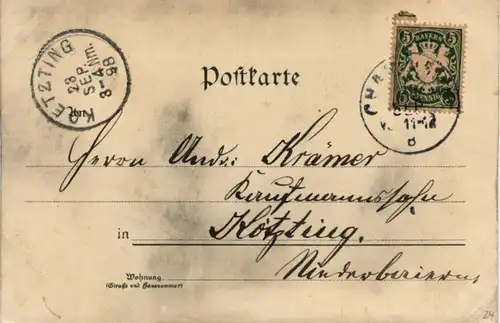 KOETZTING
28
SEP.
3-4 Nm.
98
5 BAYERN 5
PFENNIG
CHA
SEP.
V. 11-12
B
Postkarte
An
Herrn Andr. Krämer
Kaufmannssohn
in Kötzting.
Niederbaiern
Wohnung
(Straße und Hausnummer)
24